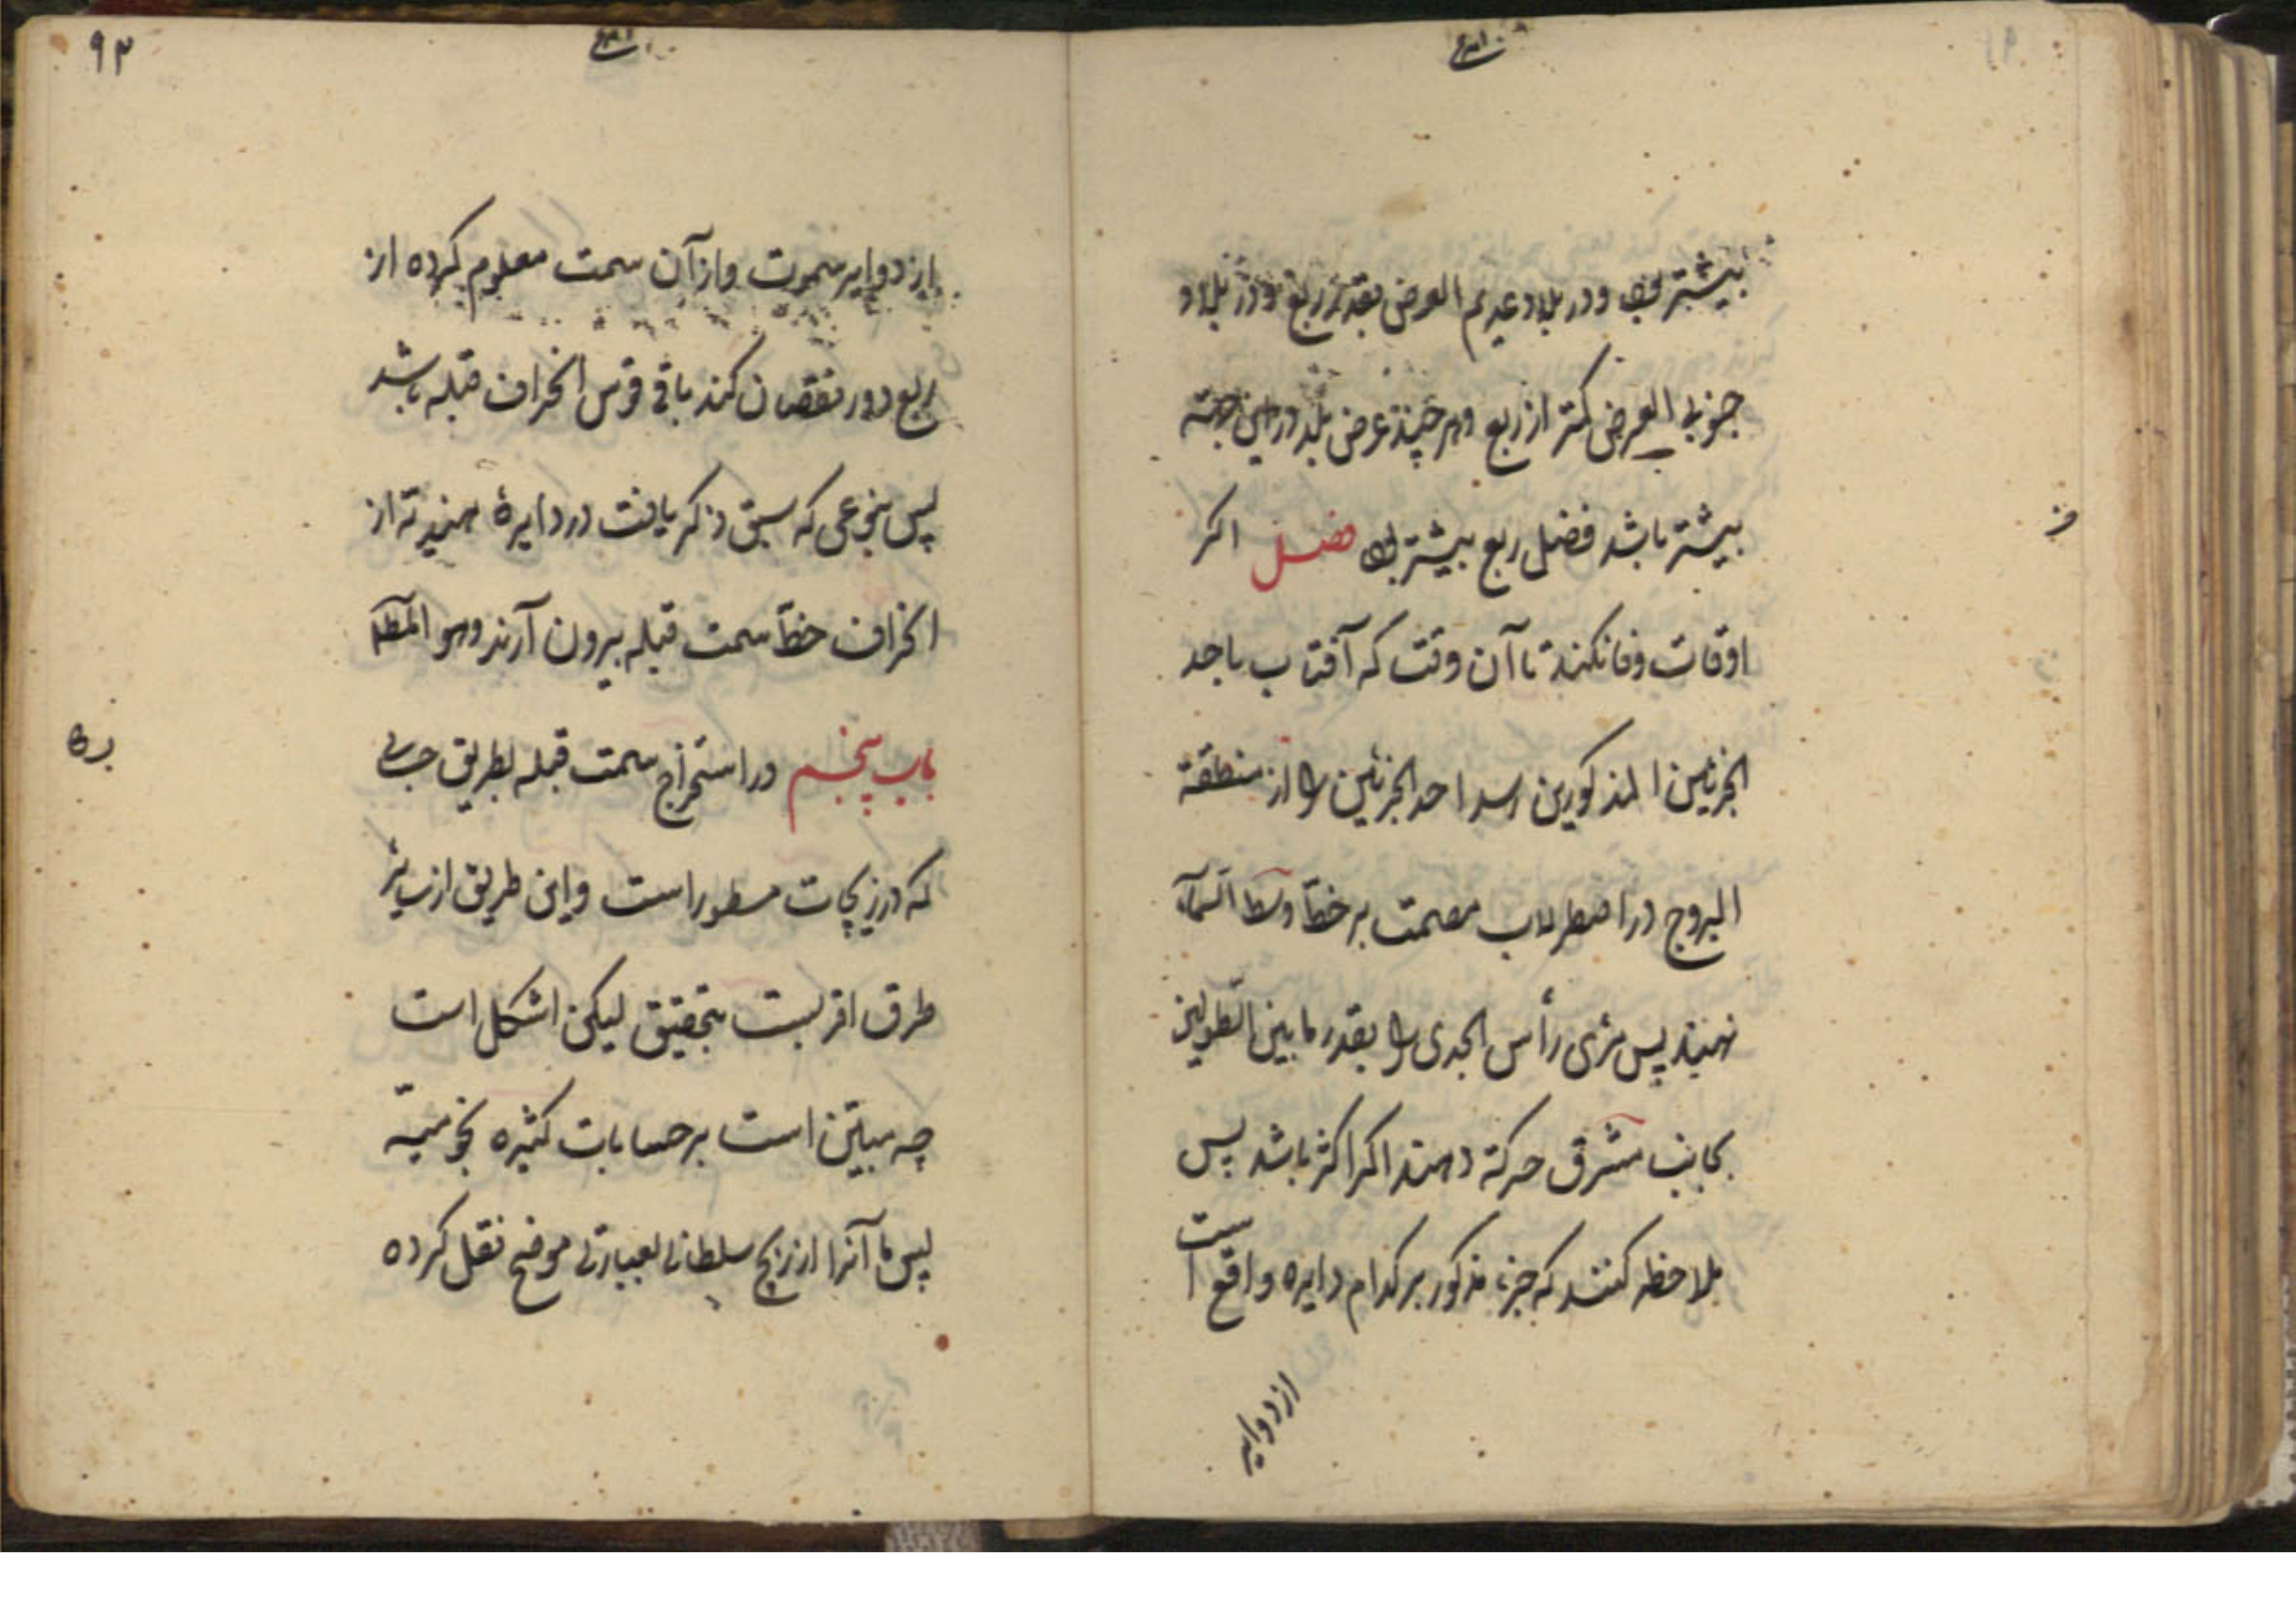 بیشتر بود و در بلاد عدیم العرض بقدر ربع و در بلاد
جنوبی العرض کمتر از ربع و هر چند عرض بلد در این جهته
بیشتر باشد فضل ربع بیشتر بود فصل اکر
اوقات وفا نکند تا آن وقت که آفتاب باحد
الجزئین المذکورین رسد احد الجزئین را از منطقة
البروج در اصطرلاب مصمت بر خط وسط السمآء
نهند پس مری رأس الجدی را بقدر ما بین الطولین
بجانب مشرق حرکة دهند اکر اکثر باشد پس
ملاحظه کنند که جزء مذکور بر کدام دایره واقع است
از دوایر
۹۳
از دوایر سموت و از آن سمت معلوم کرده از
ربع دور نقصان کند باقی قوس انحراف قبله باشد
پس بنوعی که سبق ذکر یافت در دایرهٔ هندیه از
انحراف خط سمت قبله بیرون آرند وهو المط
باب پنجم در استخراج سمت قبله بطریق حسابی
که در زیجات مسطور است و این طریق از سایر
طرق اقربست بتحقیق لیکن اشکل است
چه مبتنی است بر حسابات کثیره نجومیة
پس ما آنرا از زیج سلطانی بعبارتی موضح نقل کرده